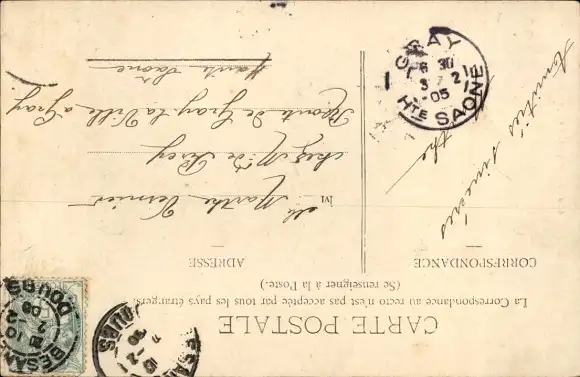 CARTE POSTALE
La Correspondance au recto n'est pas acceptée par tous les pays étrangers.
(Se renseigner à la Poste.)
CORRESPONDANCE
ADRESSE
Amitiés sincères
M
elle Marthe Vernier
chez Mr de Perey
Route de Gray la Ville à Gray
Haute Saône
GRAY
6 30
3 7 2
05
HTE SAONE
BESAN
DOUBS
DOUBS